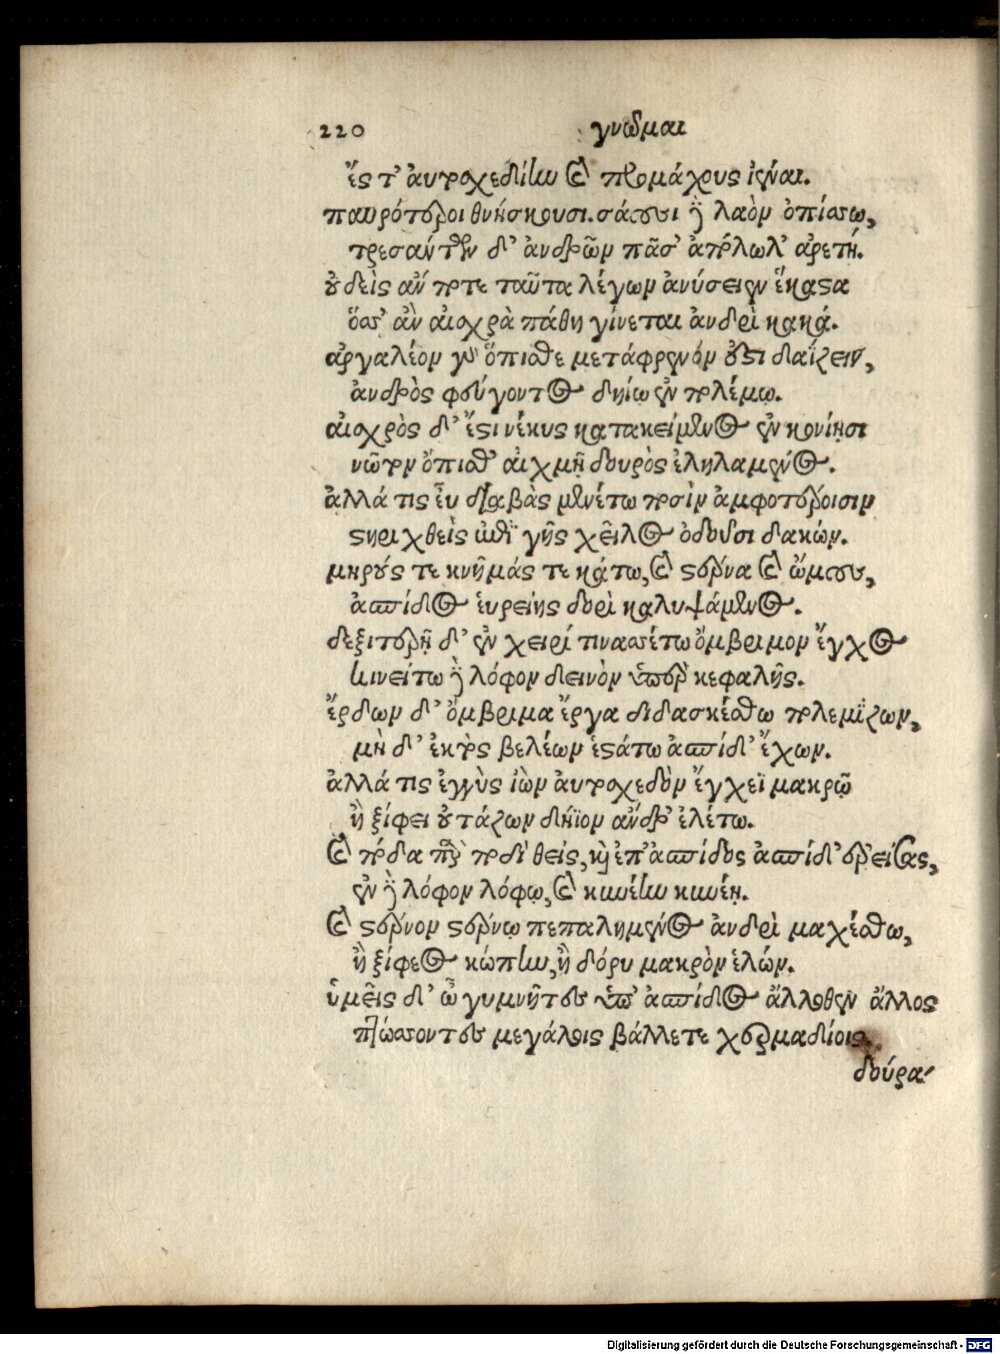 220 γνῶμαι
ἔς τ' αὐτοσχεδίην καὶ προμάχους ἰέναι.
παυρότεροι θνήσκουσι. σάουσι δὲ λαὸν ὀπίσσω,
τρεσσάντων δ' ἀνδρῶν πᾶσ' ἀπόλωλ' ἀρετή.
οὐδεὶς ἄν ποτε ταῦτα λέγων ἀνύσειεν ἕκαστα
ὅσσ' ἂν αἰσχρὰ πάθῃ γίνεται ἀνδρὶ κακά.
ἀργαλέον γὰρ ὄπισθε μετάφρενόν ἐστι δαΐζειν,
ἀνδρὸς φεύγοντος δηίῳ ἐν πολέμῳ.
αἰσχρὸς δ' ἔστι νέκυς κατακείμενος ἐν κονίῃσι
νῶτον ὄπισθ' αἰχμῇ δουρὸς ἐληλαμένος.
ἀλλά τις εὖ διαβὰς μενέτω ποσὶν ἀμφοτέροισιν
στηριχθεὶς ἐπὶ γῆς χεῖλος ὀδοῦσι δακών.
μηρούς τε κνήμάς τε κάτω, καὶ στέρνα καὶ ὤμους,
ἀσπίδος εὐρείης δορὶ καλυψάμενος.
δεξιτερῇ δ' ἐν χειρί τινασσέτω ὄμβριμον ἔγχος
κινείτω δὲ λόφον δεινὸν ὑπὲρ κεφαλῆς.
ἔρδων δ' ὄμβριμα ἔργα διδασκέσθω πολεμίζων,
μὴ δ' ἐκτὸς βελέων ἑστάτω ἀσπίδ' ἔχων.
ἀλλά τις ἐγγὺς ἰὼν αὐτοσχεδὸν ἔγχεϊ μακρῷ
ἢ ξίφει οὐτάζων δήϊον ἄνδρ' ἑλέτω.
καὶ πόδα πὰρ ποδὶ θεὶς, καὶ ἐπ' ἀσπίδος ἀσπίδ' ἐρείσας,
ἐν δὲ λόφον λόφῳ, καὶ κυνέην κυνέῃ.
καὶ στέρνον στέρνῳ πεπαλημένος ἀνδρὶ μαχέσθω,
ἢ ξίφεος κώπην, ἢ δόρυ μακρὸν ἑλών.
ὑμεῖς δ' ὦ γυμνῆτες ὑπ' ἀσπίδος ἄλλοθεν ἄλλος
πτώσσοντες μεγάλοις βάλλετε χερμαδίοις.
δούρα
Digitalisierung gefördert durch die Deutsche Forschungsgemeinschaft - DFG